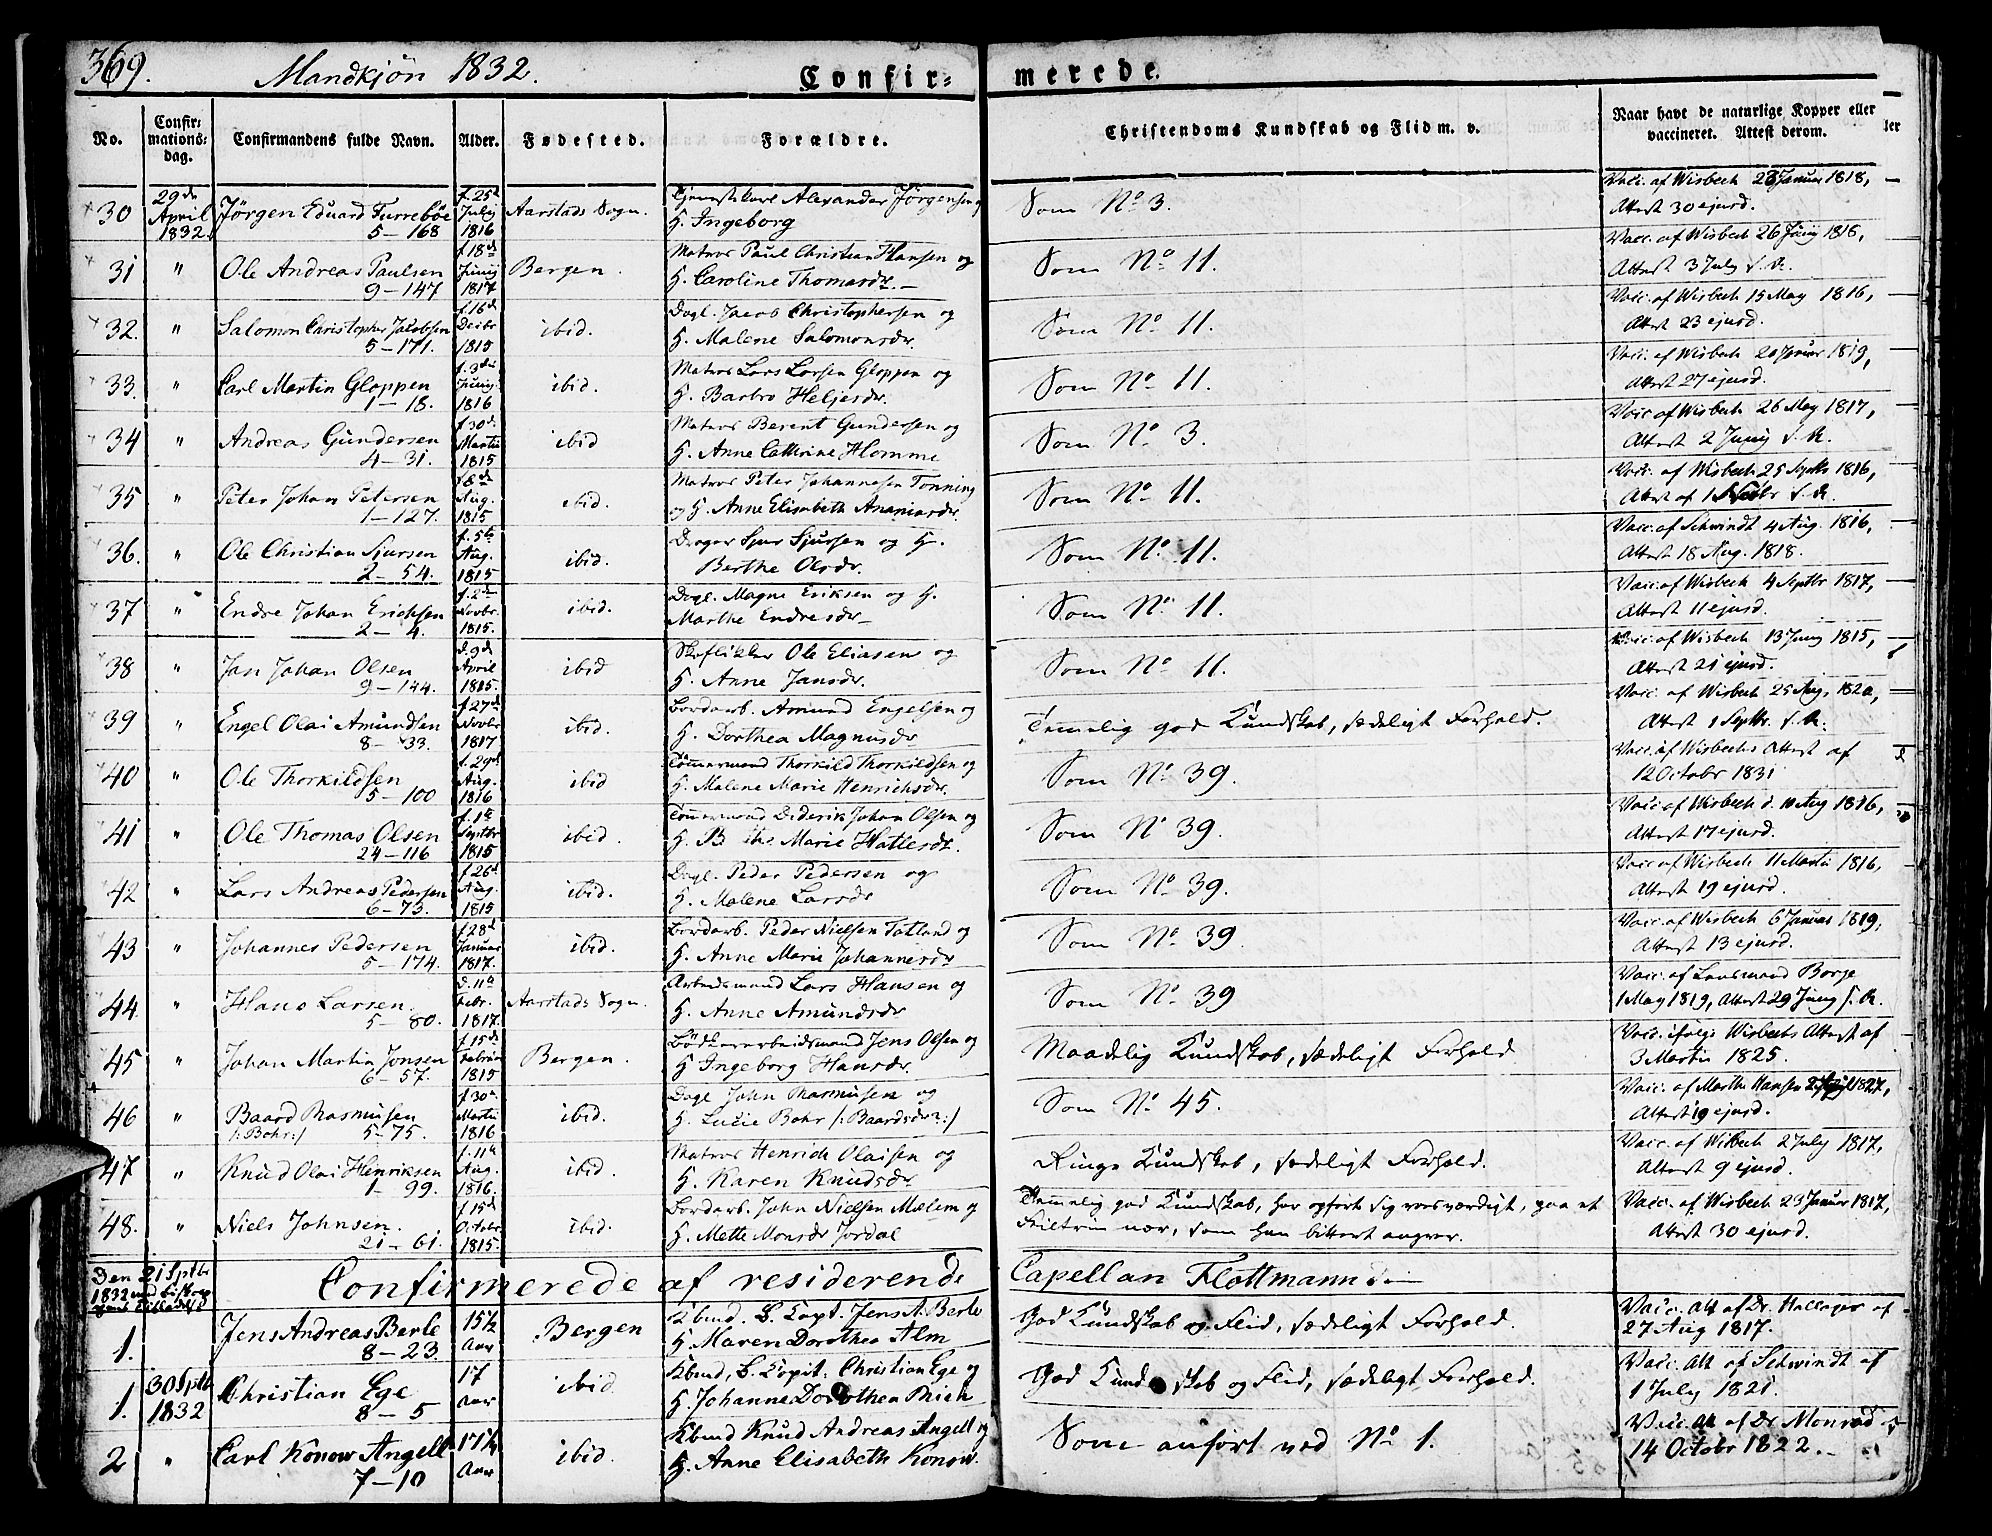 369. Mandkjön 1832. Confir- merede.
No. Confir-mations-dag. Confirmandens fulde Navn. Alder. Fødested. Forældre. Christendoms Kundskab og Flid m. v. Naar havt de naturlige Kopper eller vaccineret. Attest derom.
30 29de April 1832. Jörgen Eduard Furreböe 5-168 f. 25d July 1816 Aarstads Sogn. Alexander Jörgensen og H. Ingeborg Som No. 3. Vacc. af Wisbech 28 Januar 1818, Attest 30 ejusd.
31 " Ole Andreas Paulsen 9-147 f. 18d Junij 1817 Bergen. Matros Paul Christian Hansen og H. Caroline Thomasdr. Som No. 11. Vacc. af Wisbech 26 Junij 1818, Attest 3 July s. A.
32. " Salomon Christopher Jacobsen 5-171. f. 16d Decbr 1815 ibid. Dagl. Jacob Christophersen og H. Malene Salomonsdr. Som No. 11. Vacc. af Wisbech 15 May 1816, Attest 23 ejusd.
33. " Carl Martin Gloppen 1-18. f. 3die Junij 1816 ibid. Matros Lars Larsen Gloppen og H. Barbro Heljesdr. Som No. 11. Vacc. af Wisbech 20 Januar 1819, Attest 27 ejusd.
34 " Andreas Gundersen 4-31. f. 30d. Martii 1815 ibid Matros Berent Gundersen og H. Anne Cathrine Homme Som No. 3. Vacc af Wisbech 26 May 1817, Attest 2 Junij s. A.
35 " Peter Johan Petersen 1-127. f. 8de Aug. 1815 ibid. Matros Peter Johannesen Tonning og H. Anne Elisabeth Ananiasdr. Som No. 11. Vacc. af Wisbech 25 Septbr 1816, Attest af 1 s. A.
36. " Ole Christian Sjursen 2-54. f. 5te Aug. 1815 ibid. Drager Sjur Sjursen og H. Berthe Olsdr. Som No. 11. Vacc. af Schwindt 4 Aug. 1816, Attest 18 Aug. 1818.
37 " Endre Johan Erichsen 2-4. f. 2den Novbr. 1815. ibid. Dagl. Magne Eriksen og H. Marthe Endresdr Som No. 11. Vacc. af Wisbech 4 Septbr 1817, Attest 11 ejusd.
38 " Jan Johan Olsen 9-144. d. 9d April 1815. ibid Skoflikker Ole Eliasen og H. Anne Jansdr. Som No. 11. Vacc. af Wisbech 13 Junij 1815, Attest 21 ejusd.
39 " Engel Olai Amundsen 8-33. f. 27d Novbr 1817 ibid. Bordarb. Amund Engelsen og H. Dorthea Magnusdr Temmelig god Kundskab, sædeligt Forhold. Vacc. af Wisbech 25 Aug. 1820, Attest 1 Septbr. s. A.
40 " Ole Thorkildsen 5-100 f. 29d. Aug. 1816 ibid Tömmermand Thorkild Thorkildsen og H. Malene Marie Henrichsdr. Som No. 39. Vacc. af Wisbechs Attest af 12 Octobr 1831
41 " Ole Thomas Olsen 24-116 f. 1te Septbr 1815 ibid. Tömmermand Diderik Johan Olsen og H. Marie Hattesdr. Som No 39. Vacc af Wisbech d. 10 Aug 1816, Attest 17 ejusd.
42 " Lars Andreas Pedersen 6-73. f. 26d Aug. 1815 ibid. Dagl. Peder Pedersen og H. Malene Larsdr Som No. 39. Vacc af Wisbech 11 Martii 1816, Attest 19 ejusd.
43 " Johannes Pedersen 5-174. f. 28d Januar 1817. ibid. Bordarb. Peder Nielsen Totland og H. Anne Marie Johannesdr Som No. 39. Vacc. af Wisbech 6 Januar 1819, Attest 13 ejusd.
44. " Hans Larsen. 5-80. d. 11te Febr. 1817. Aarstads Sogn. Arbeidsmand Lars Hansen og H. Anne Amundsdr Som No. 39 Vacc. af Lensmand Borge 1 May 1819, Attest 29 Junij s. A.
45 " Johan Martin Jonsen 6-57. f. 15d Febru 1815 Bergen. Bödkerarbeidsmand Jens Olsen og H Ingeborg Hansdr. Maadelig Kundskab, sædeligt Forhold Vacc. ifølge Wisbechs Attest af 3 Martii 1825.
46 " Baard Rasmusen /:Bohr:/ 5-75. f. 30d Martii 1816 ibid. Dagl John Rasmusen og H. Lucie Bohr /:Baardsdr:/ Som No. 45. Vacc. af Marthe Hansen 1827, Attest 19 ejusd.
47 " Knud Olai Henriksen 1-99. f. 11te Aug. 1816. ibid. Matros Henrich Olaisen og H. Karen Knudsdr Ringe Kundskab, sædeligt Forhold. Vacc. af Wisbech 2 July 1817, Attest 9 ejusd.
48. " Niels Johnsen. 21-61. f. 15d Octobr 1815. ibid. Bordarb. John Nielsen Mælem og H. Mette Monsdr Jordal Temmelig god Kundskab, har opført sig paa et nær, som han bittert angrer. Vacc. af Wisbech 23 Januar 1817, Attest 30 ejusd.
Den 21 Septbr 1832 Confirmerede af residerende Capellan Flottmann
1. Jens Andreas Berle 8-23. 15½ Aar Bergen Kbmd. B. Capt. Jens A. Berle H. Maren Dorothea Alm God Kundskab og Flid, sædeligt Forhold. Vacc. Att af Dr. Hallager af 27 Aug 1817.
1. 30 Septbr 1832 Christian Ege 8-5 17 Aar ibid Kbmd, B. Capit. Christian Ege og H. Johanne Dorothea Rieck God Kundskab og Flid, sædeligt Forhold. Vacc. Att af Schwindt af 1 July 1821.
2 " Carl Konow Angell 7-10 17¼ Aar ibid. Kbmd Knud Andreas Angell og H. Anne Elisabeth Konow. Som anført ved No. 1. Vacc. Att af Dr. Monrad af 14 Octobr 1822.